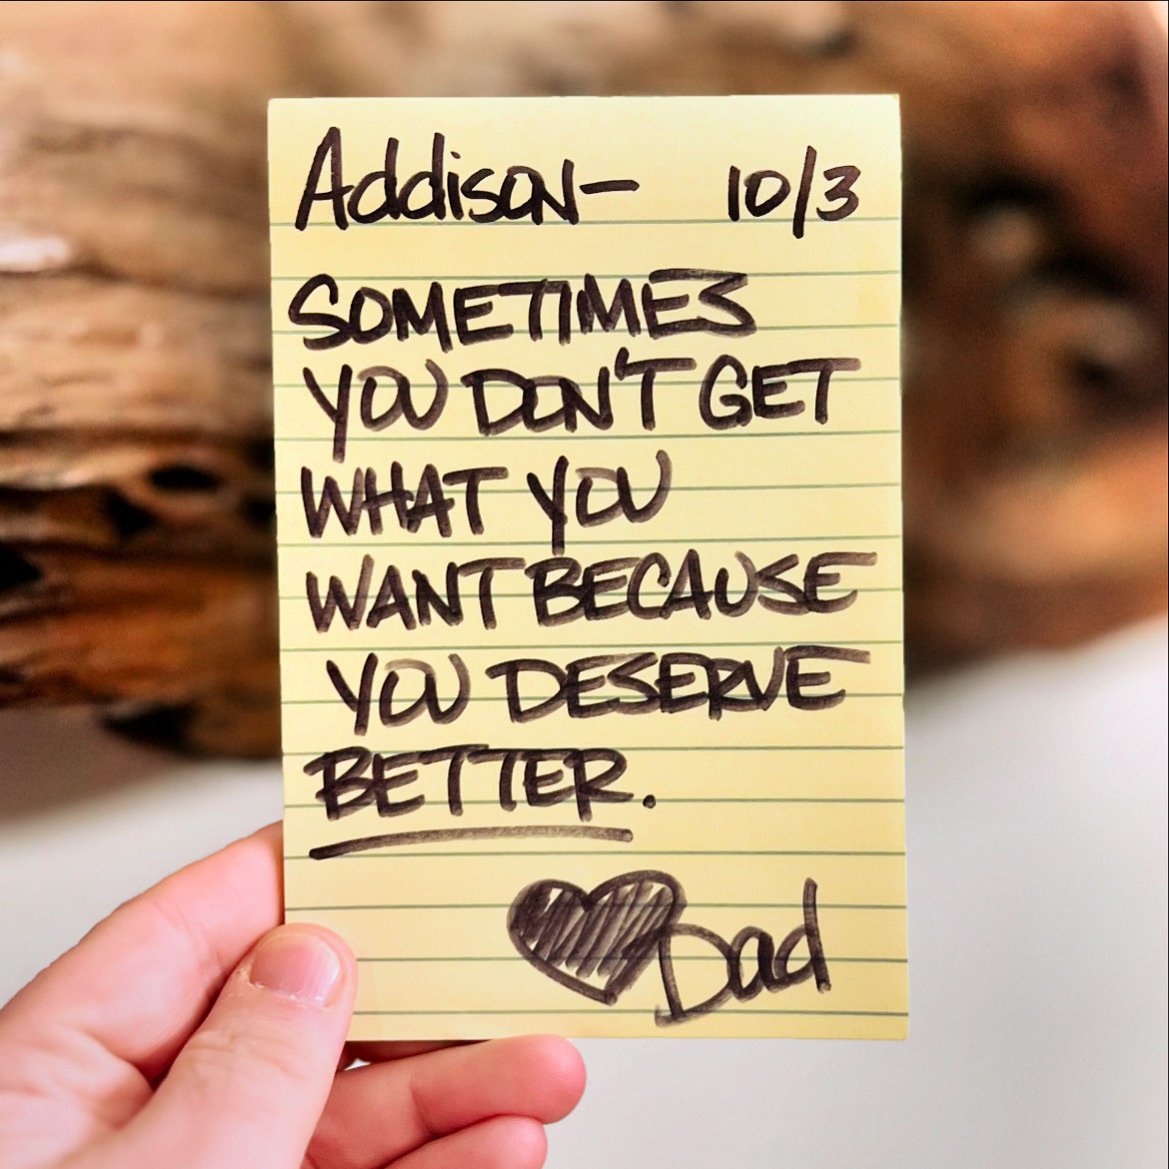 Addison- 10/3
SOMETIMES
YOU DON'T GET
WHAT YOU
WANT BECAUSE
YOU DESERVE
BETTER.
Dad